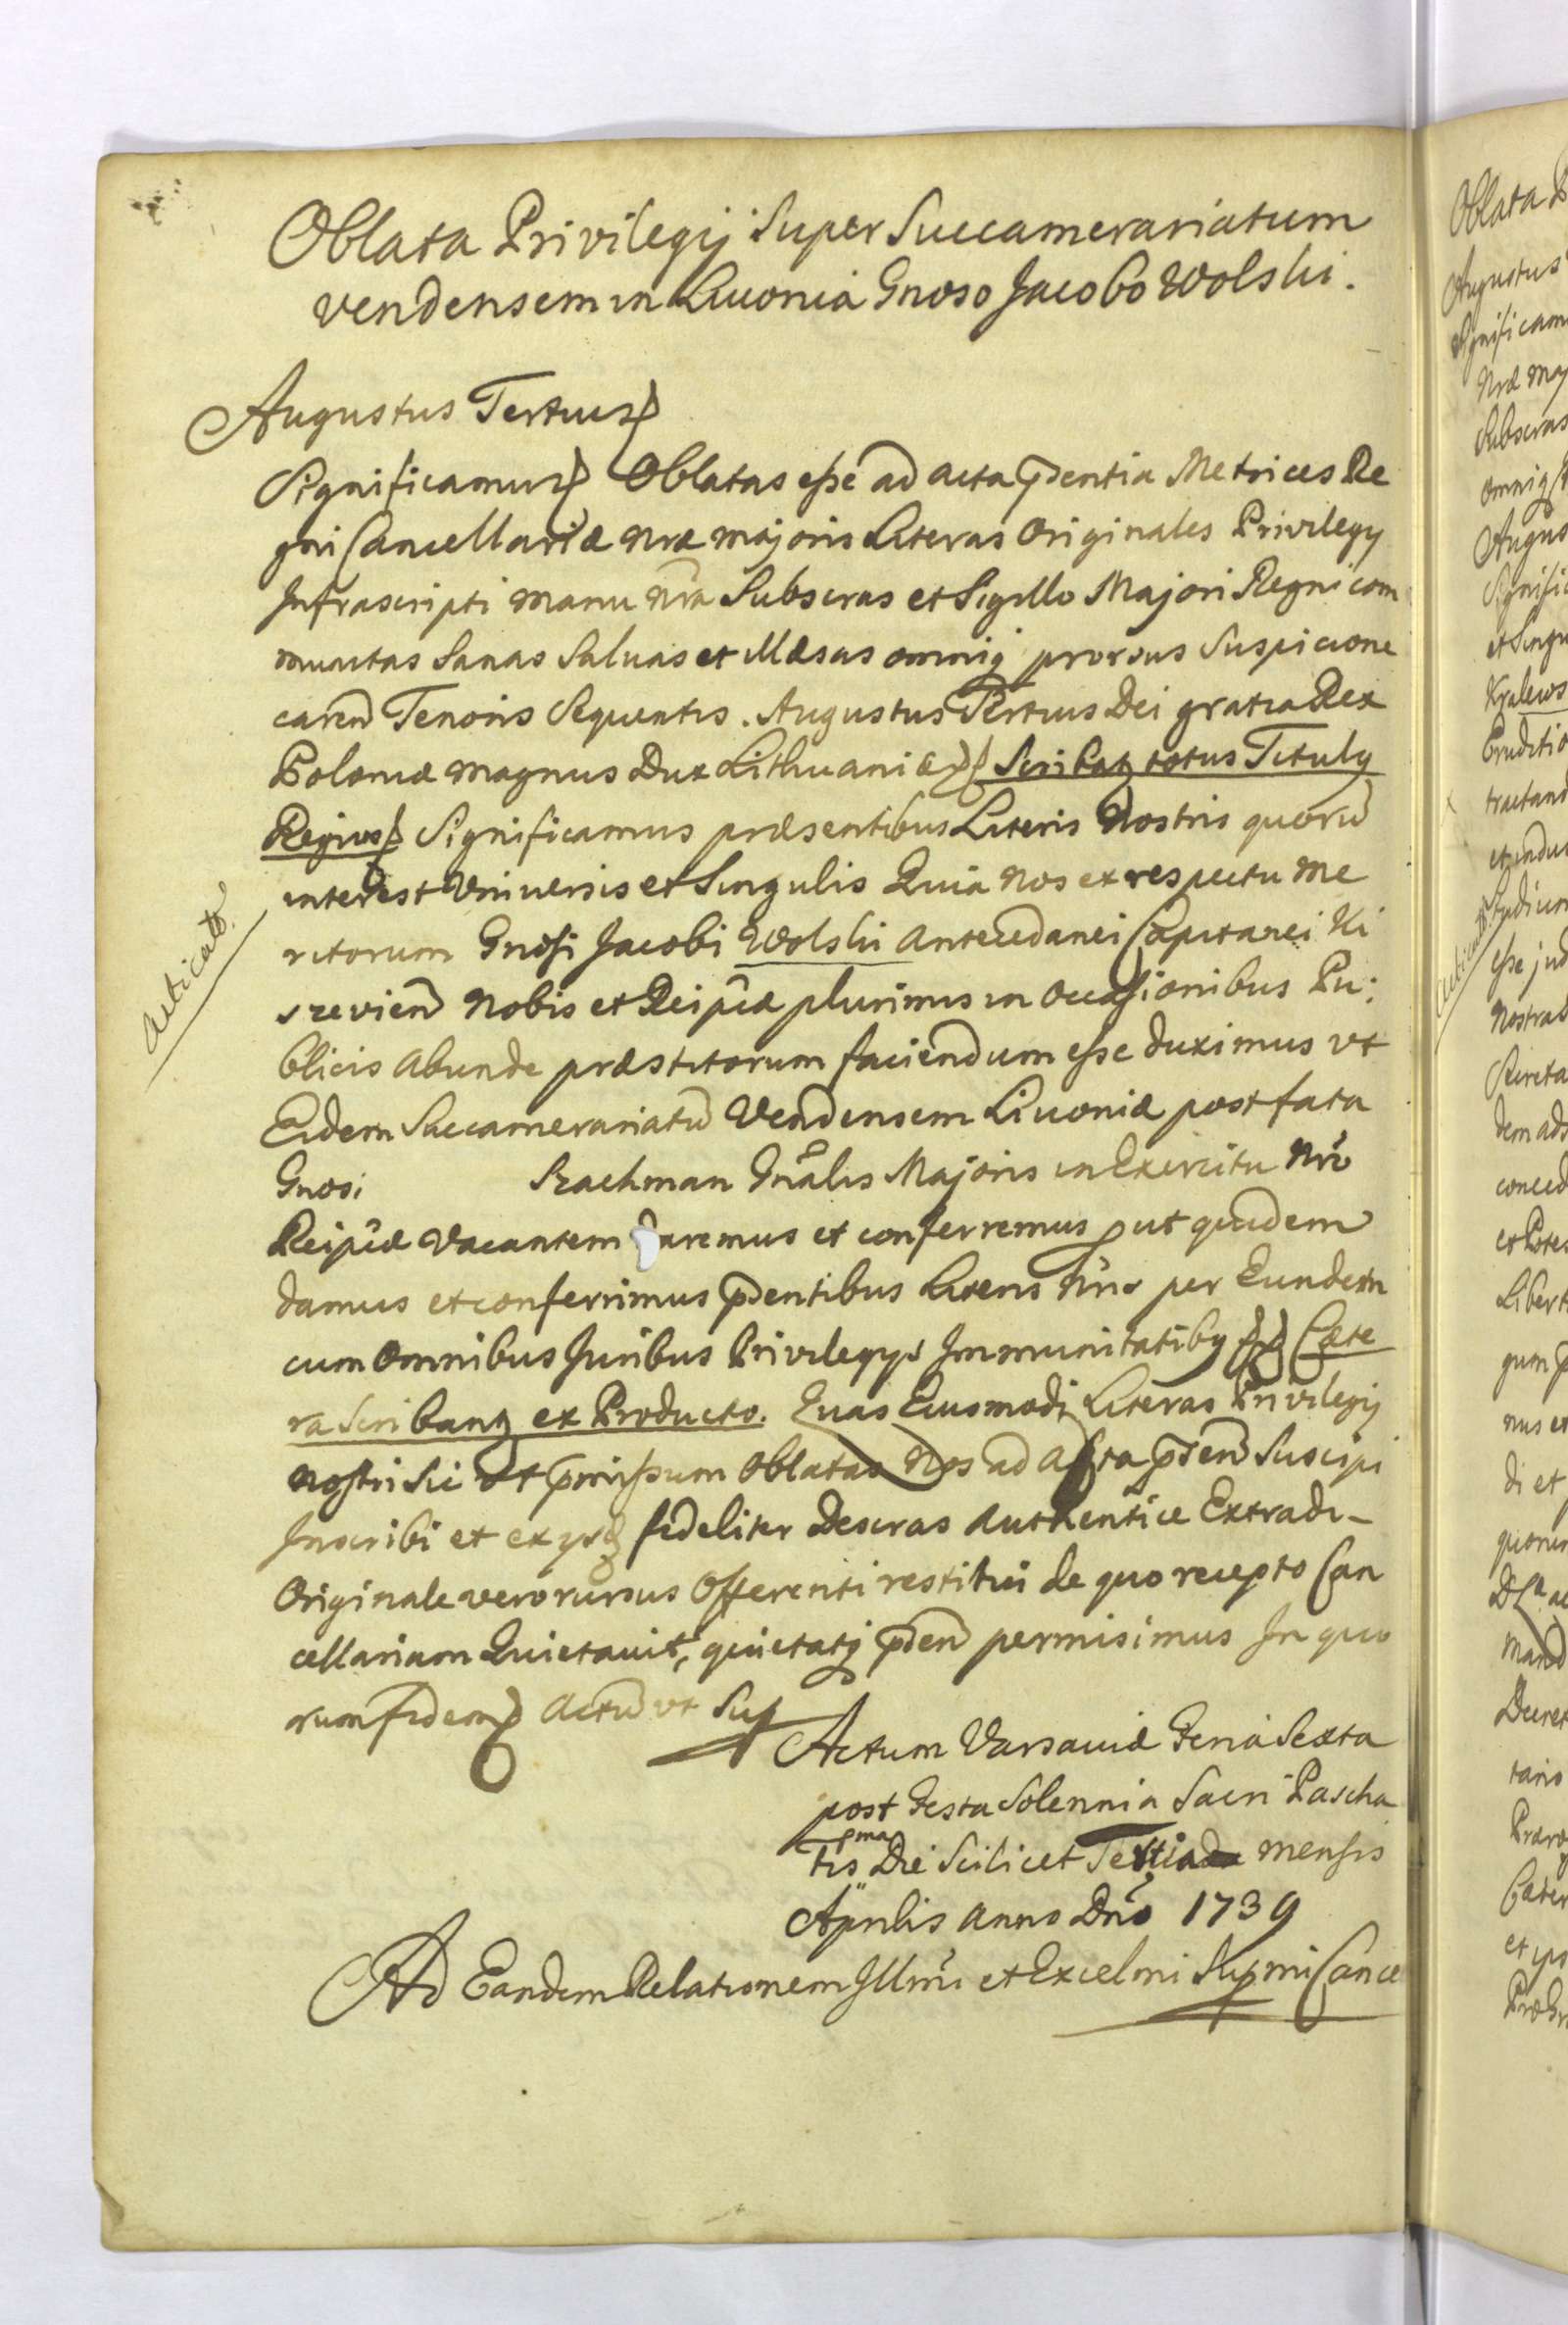 Oblata Privilegij Super Succamerariatum
Vendensem in Livonia Gnoso Jacobo Wolski.
Augustus Tertius
Significamus Oblatas esse ad acta pñsentia Metrices Re
gni Cancellariæ nræ majoris Literas Originales Privilegij
Infrascripti manu nrã Subscras et Sigillo Majori Regni com
munitas Sanas Salvas et Illæsas omniq prorsus Suspicione
caren Tenoris Sequentis. Augustus Tertius Dei gratia Rex
Poloniæ Magnus Dux Lithuaniæ Scribatz totus Titulq
Regius Significamus præsentibus Literis Nostris quoru
interest Universis et Singulis Quia Nos ex respectu Me
ritorum Gnosi Jacobi Wolski Antecedanei Capitanei Ki
szevien Nobis et Reipcæ plurimis in Occasionibus Pu:
blicis Abunde præstitorum faciendum esse duximus vt
Eidem Succamerariatu Vendensem Livoniæ post fata
Gnosi Rachman Gnãlis Majoris in Exercitu Nrõ
Reipcæ Vacantem daremus et conferremus put quidem
damus et conferrimus pñsentibus Literis Nris per Eundem
cum Omnibus Juribus Privilegys Immunitatibq Cæte
ra Scribantz ex Producto. Quas Eiusmodi Literas Privilegij
Nostri Sic vt pmissum Oblatas Nos ad Acta pñsen Suscipi
Inscribi et ex ysdq fideliter Descras Authentice Extradi-
Originale vero rursus Offerenti restitui de quo recepto Can
cellariam Quietavit, quietatq pñsen permisimus In quo
rum fidem Actu vt Sup
Actum Varsaviæ Feria Sexta
post Festa Solennia Sacri Pascha
tis pma Die Scilicet Tertia mensis
Aprilis Anno Dnõ 1739
Ad Eandem Relationem Illmi et Excelmi Supmi Cance
Acticat